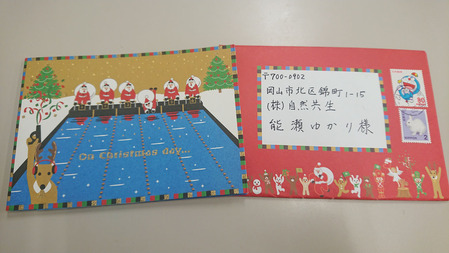 On Christmas day...
〒700-0902
岡山市北区錦町1-15
(株)自然共生
能瀬ゆかり様
2
NIPPON